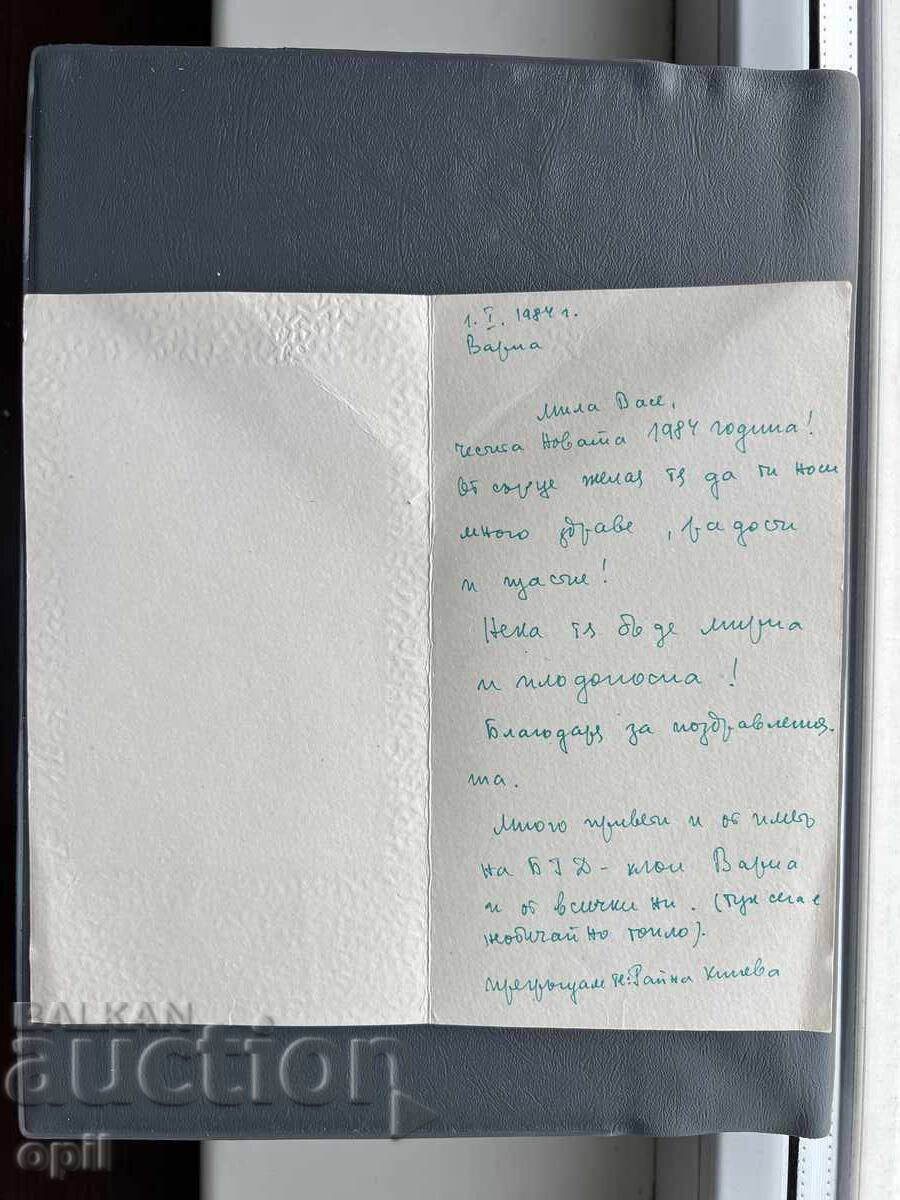 1. I. 1984 г.
Варна
Мила Васе,
Честита Новата 1984 година!
От сърце желая тя да ти носи
много здраве, радости
и щастие!
Нека тя бъде мирна
и плодоносна!
Благодаря за поздравления-
та.
Много привети и от името
на БГД - клон Варна
и от всички ни. (Тук сега е
необичайно топло).
Прегръщам те: Райна
BALKAN
auction
opil